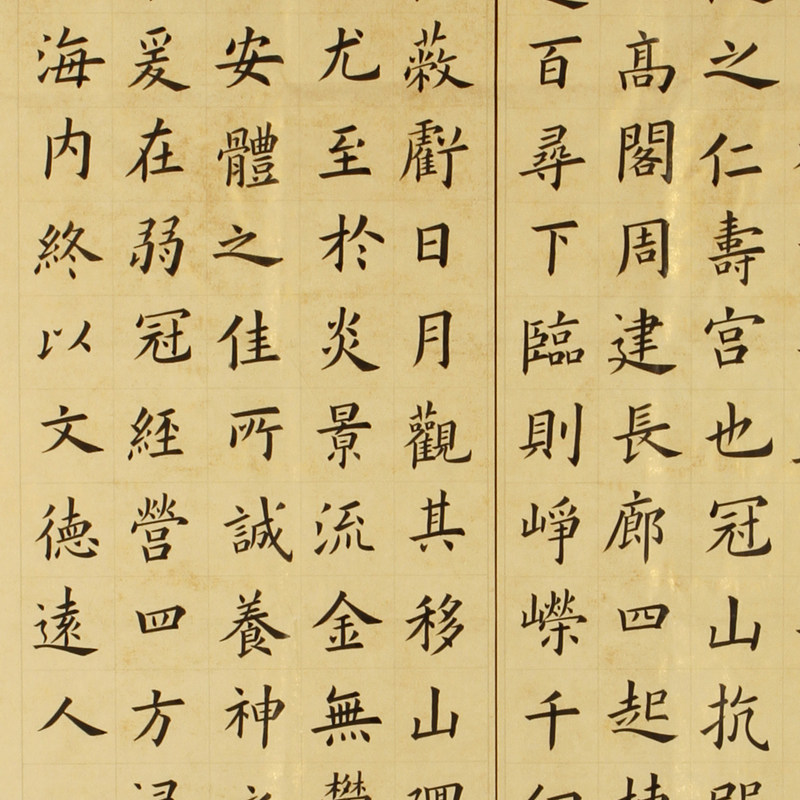 之仁壽宮也冠山抗
髙閣周建長廊四起
百尋下臨則崢嶸千
蔽虧日月觀其移山
尤至於炎景流金無
安體之佳所誠養神
爰在弱冠經營四方
海内終以文德遠人